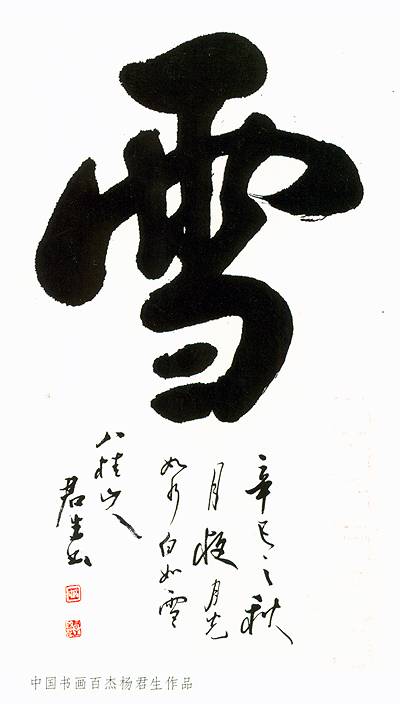 雪
辛巳之秋
月夜月光
如水白如雪
八桂山人
君生书
中国书画百杰杨君生作品